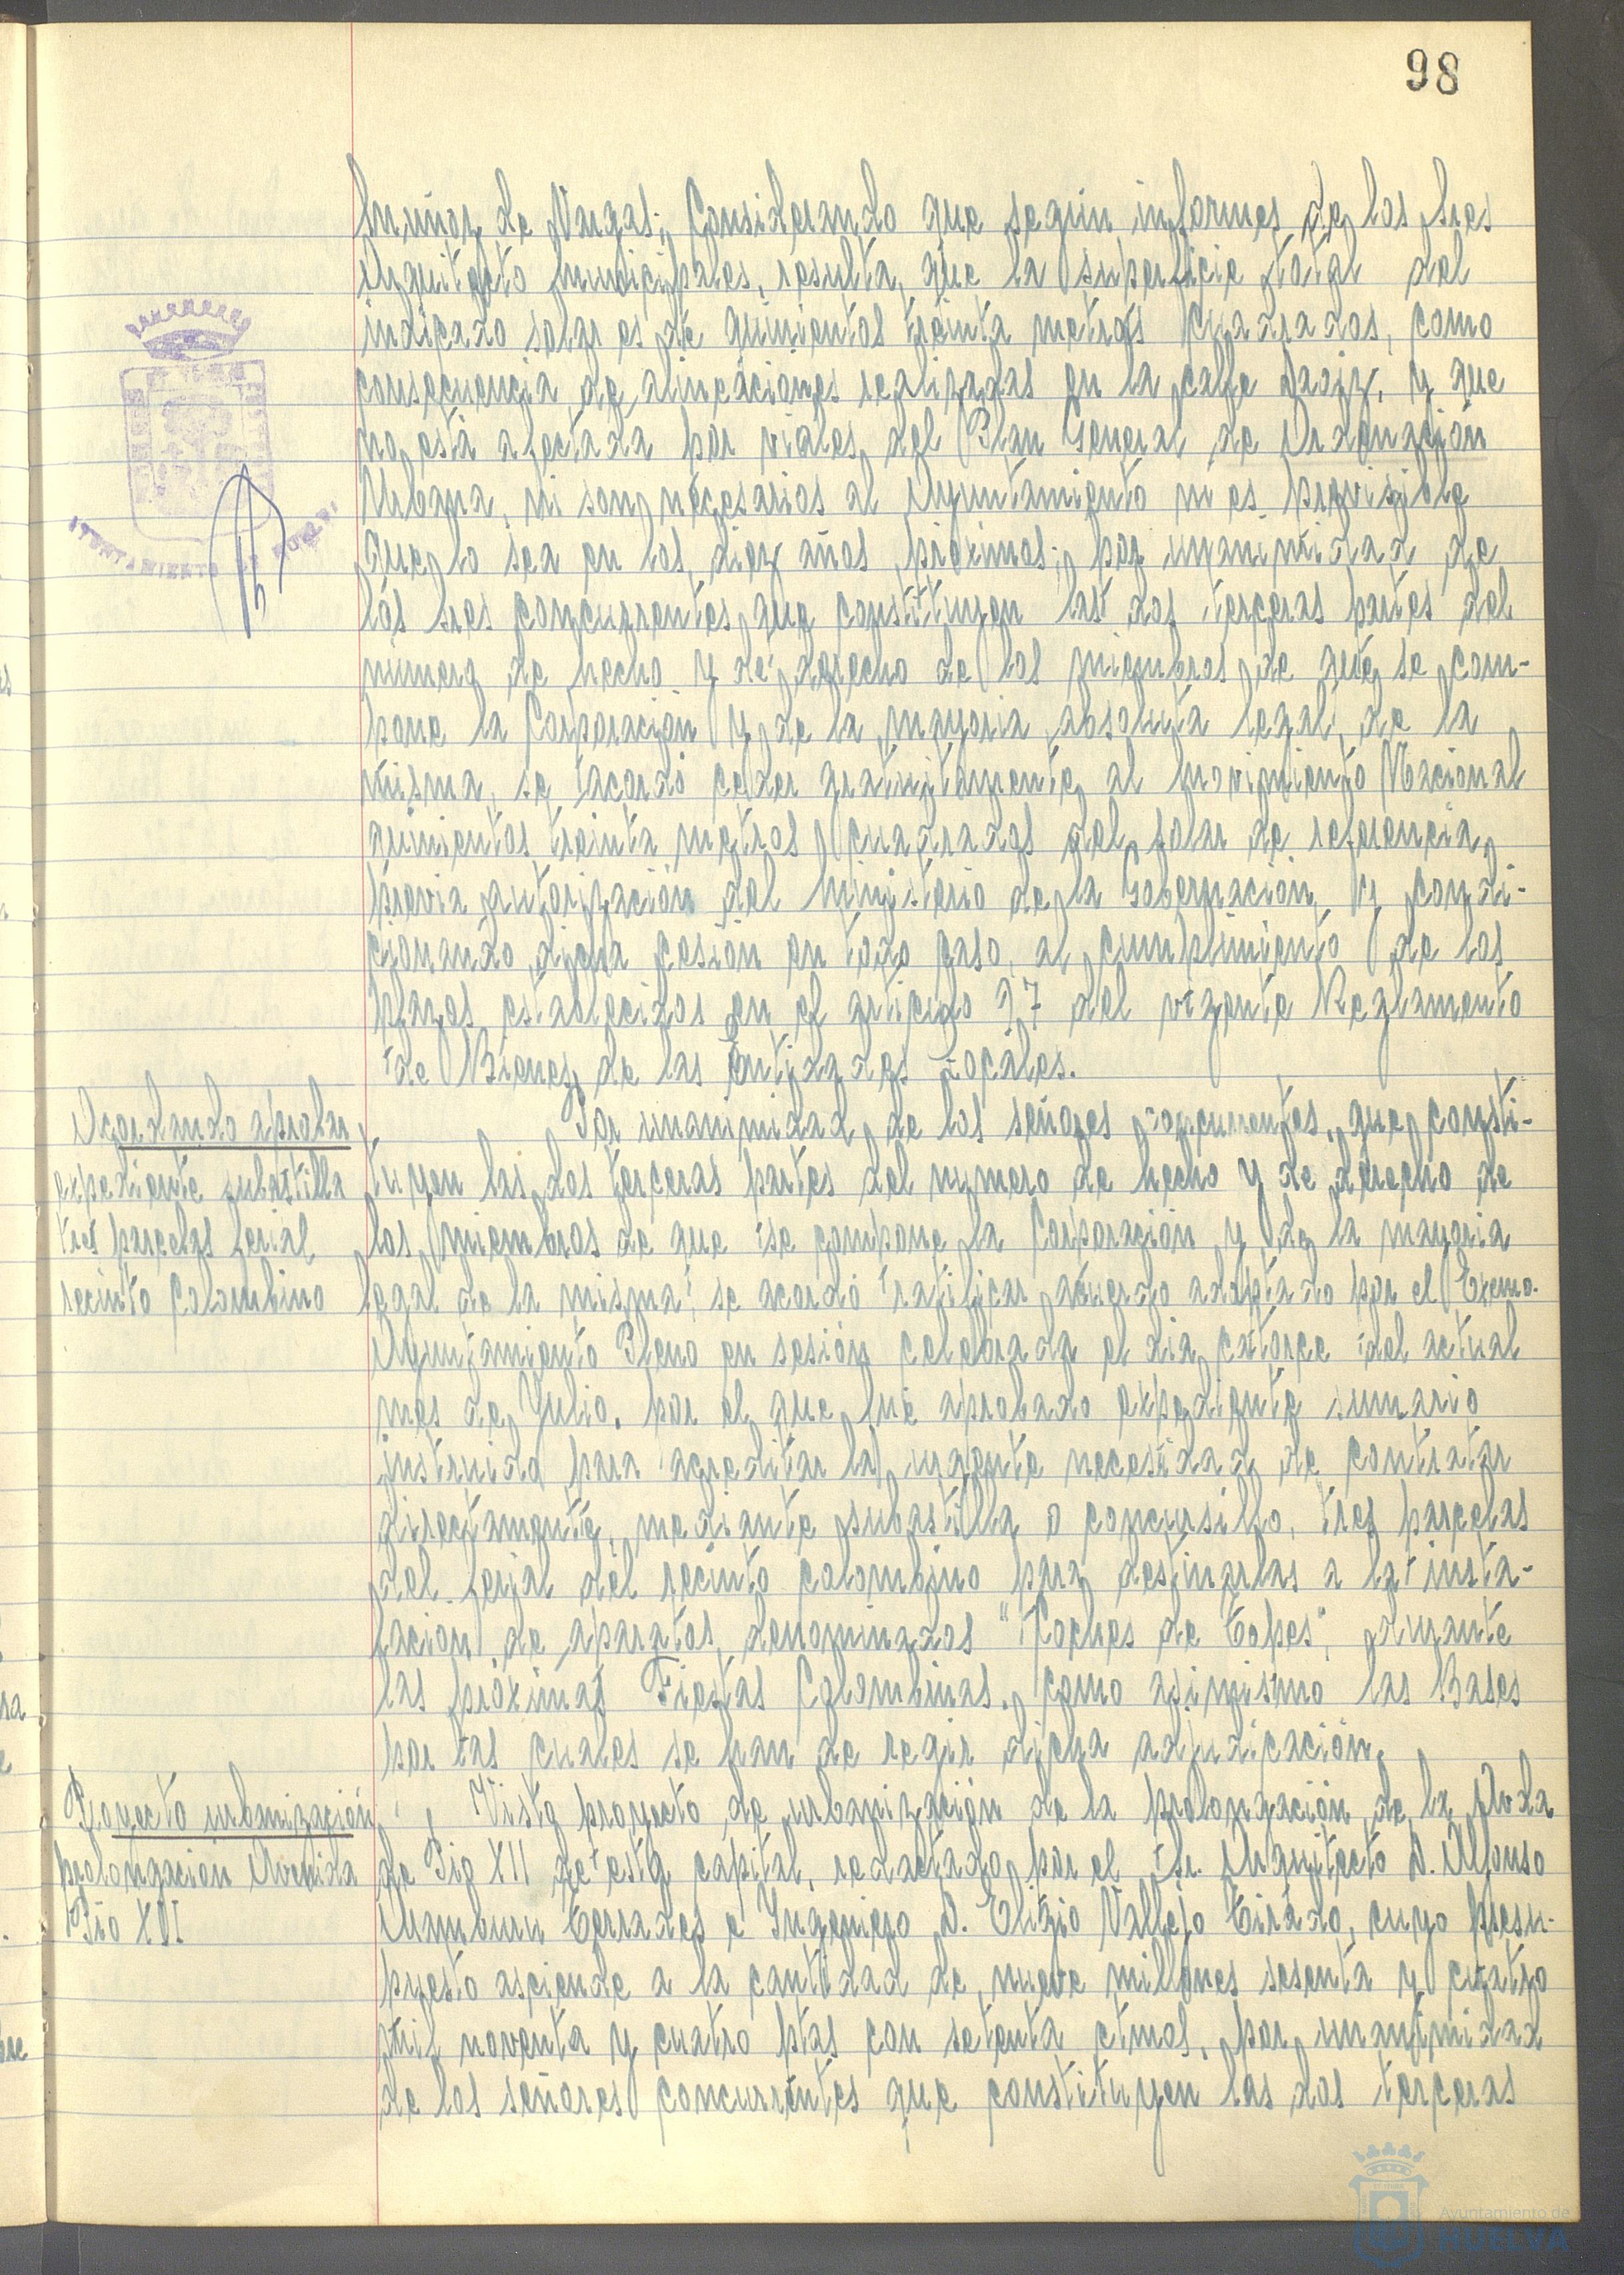 98
Muñoz de Vargas; Considerando que según informes de los Sres
Arquitecto Municipales, resulta, que la superficie total del
indicado solar es de quinientos treinta metros cuadrados, como
consecuencia de alineaciones realizadas en la calle Daoiz, y que
no está afectada por viales del Plan General de Ordenación
Urbana, ni son necesarios al Ayuntamiento ni es previsible
que lo sea en los diez años próximos; por unanimidad de
los Sres concurrentes que constituyen las dos terceras partes del
número de hecho y de derecho de los miembros de que se com-
pone la Corporación y de la mayoria absoluta legal de la
misma, se acordó ceder gratuitamente al Movimiento Nacional
quinientos treinta metros cuadrados del solar de referencia,
previa autorización del Ministerio de la Gobernación y condi-
cionando dicha cesión en todo caso, al cumplimiento de los
plazos establecidos en el artículo 97 del vigente Reglamento
de Bienes de las Entidades Locales.
Acordando aprobar
expediente subastilla
tres parcelas ferial
recinto Colombino
Por unanimidad de los señores concurrentes, que consti-
tuyen las dos terceras partes del numero de hecho y de derecho de
los miembros de que se compone la Corporación y de la mayoria
legal de la misma, se acordó ratificar acuerdo adoptado por el Excmo.
Ayuntamiento Pleno en sesión celebrada el dia catorce del actual
mes de Julio, por el que fué aprobado expediente sumario
instruido para acreditar la urgente necesidad de contratar
directamente, mediante subastilla o concursillo, tres parcelas
del ferial del recinto colombino para destinarlas a la insta-
lación de aparatos denominados "Coches de Topes", durante
las próximas Fiestas Colombinas, como asimismo las Bases
por las cuales se han de regir dicha adjudicación.
Proyecto urbanización
prolongación Avenida
Pío XII
Visto proyecto de urbanización de la prolongación de la Avda
de Pio XII de esta capital, redactado por el Sr. Arquitecto D. Alfonso
Aramburu Terrades e Ingeniero D. Eligio Vallejo Tirado, cuyo presu-
puesto asciende a la cantidad de nueve millones sesenta y cuatro
mil noventa y cuatro ptas con setenta ctmos, por unanimidad
de los señores concurrentes que constituyen las dos terceras
AYUNTAMIENTO DE HUELVA
Ayuntamiento de
HUELVA